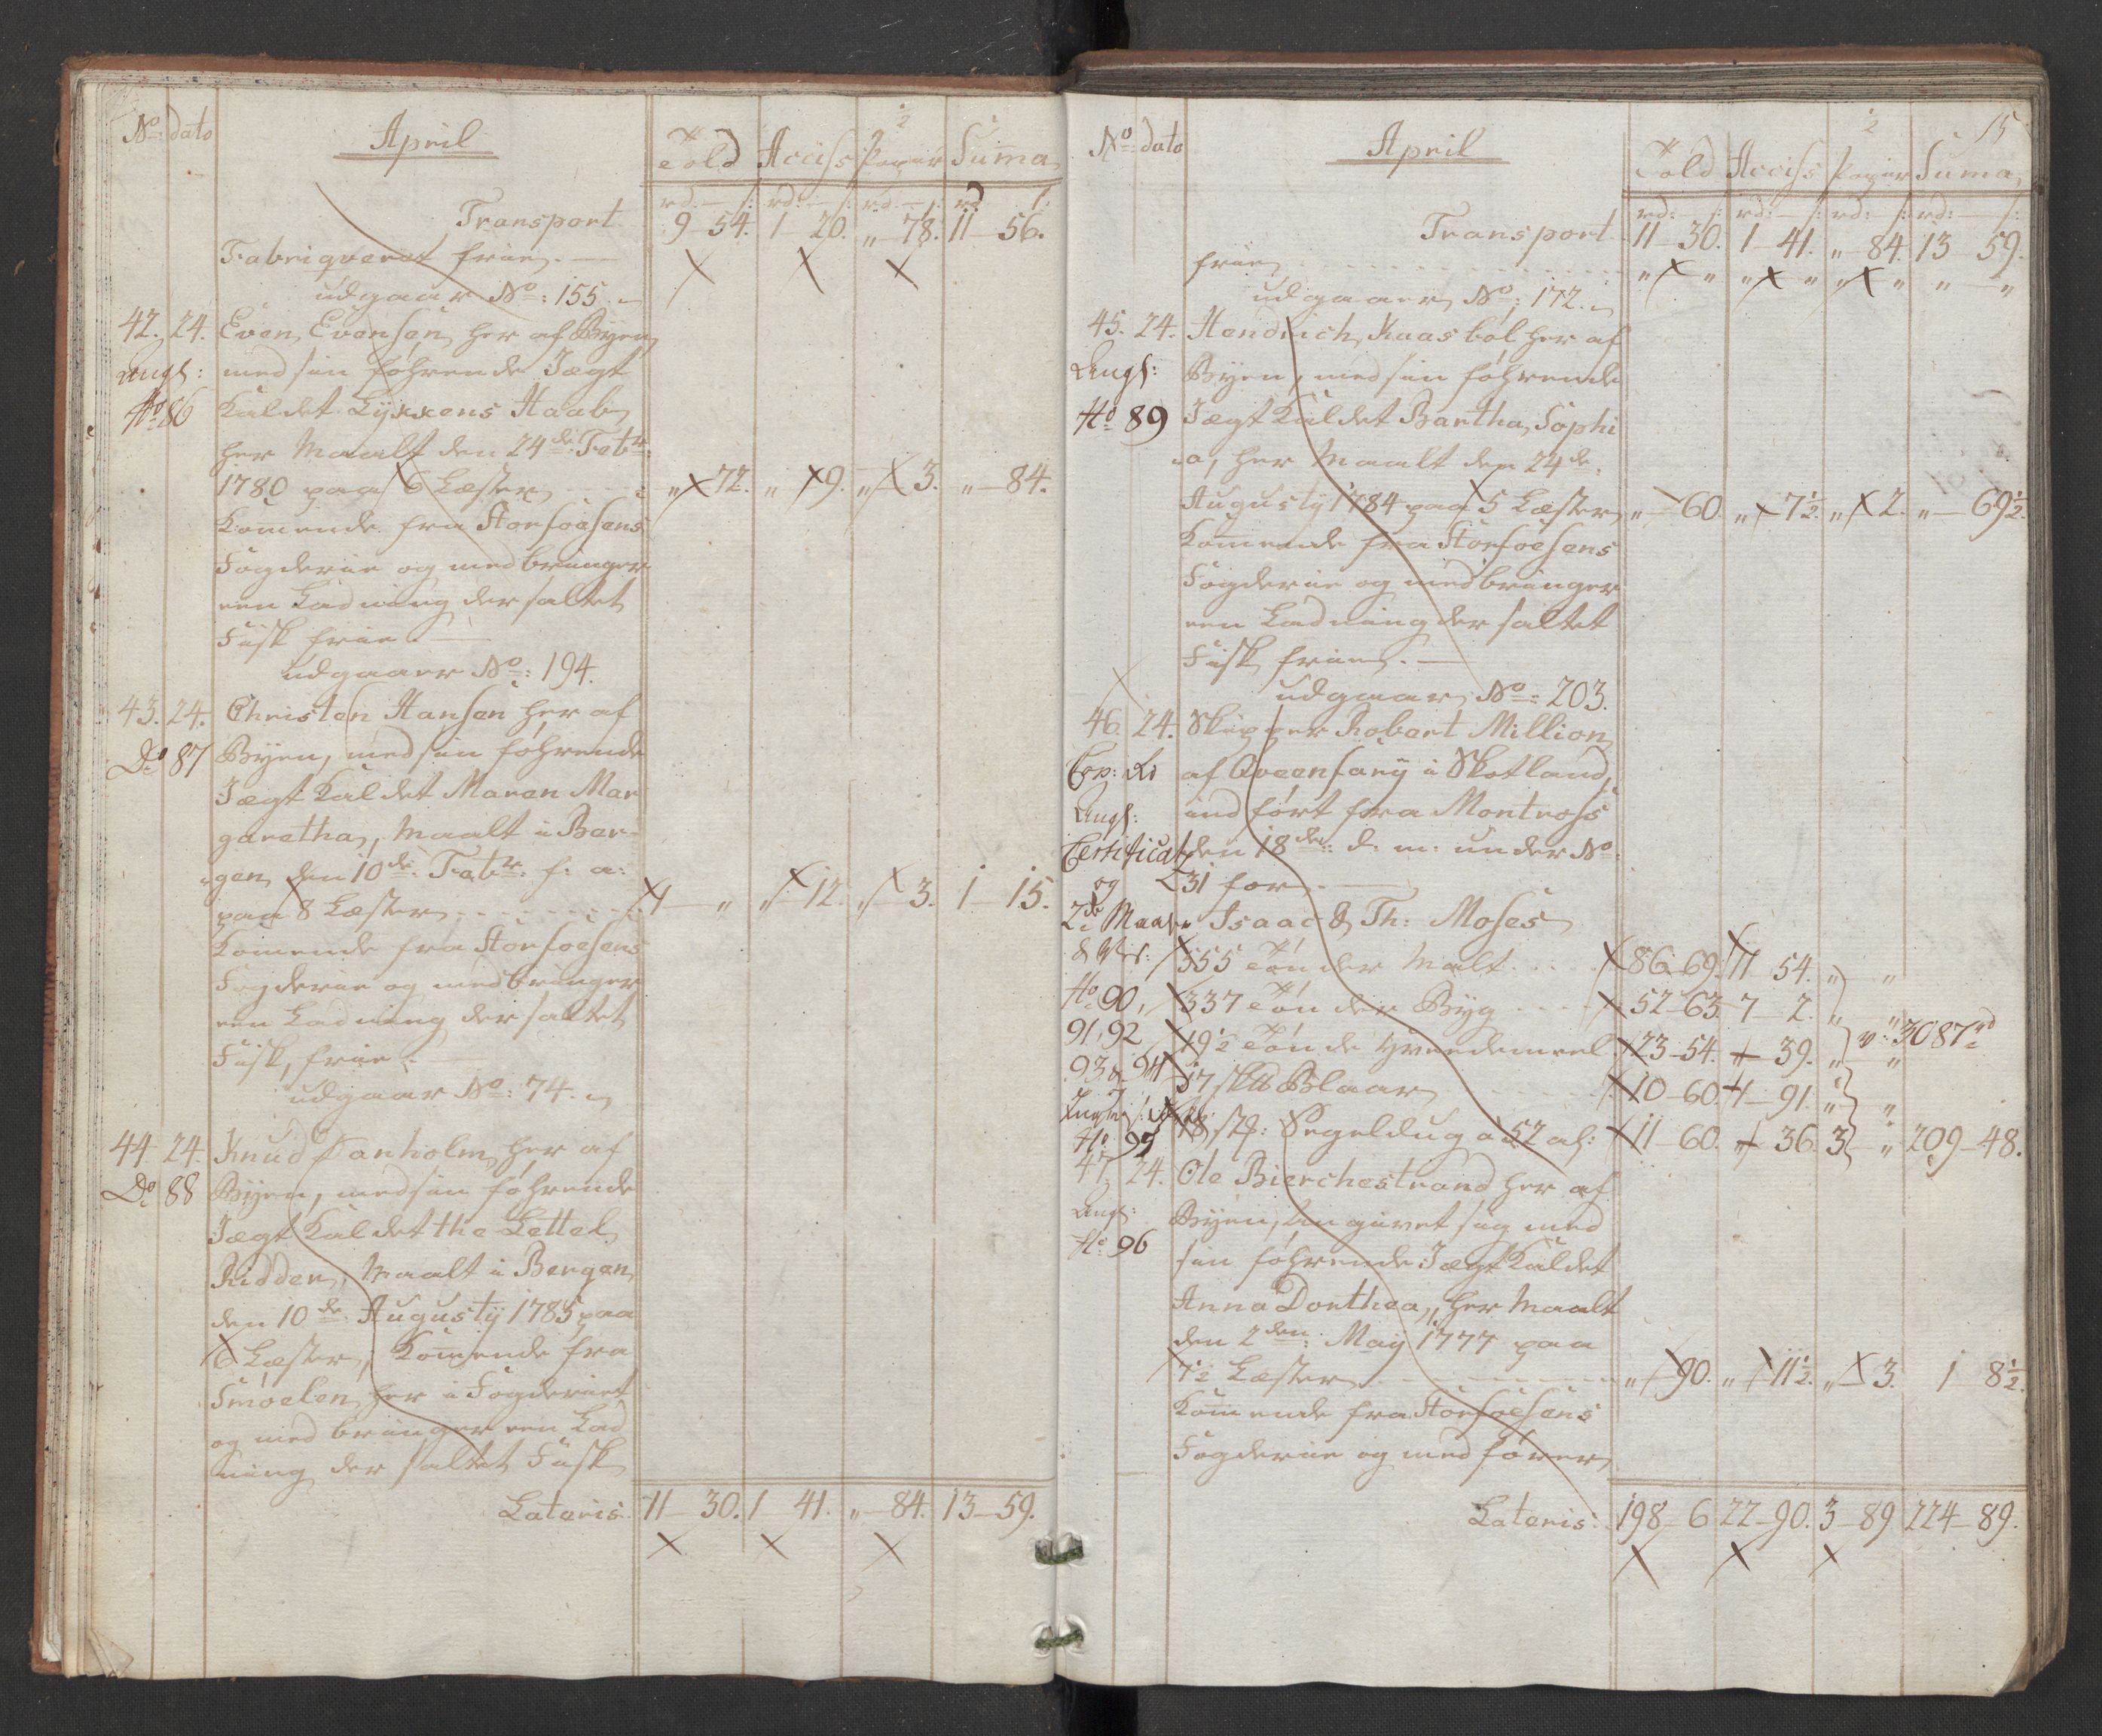 No: dato April Told Acciss Papiir Suma
rd: s: rd: s: rd: s: rd s:
Transport 9-54. 1-20. „-78. 11-56.
Fabriqveret friie.
udgaar No: 155.
42. 24. Even Evensen her af Byen
Angl: med sin føhrende Jægt
No 86 Kaldet Lykkens Haab
her Maalt den 24de Febr:
1780 paa 6 Læster „ 72. „ 9. „ 3. „-84.
Komende fra Storfosens
Fogderie og medbringer
een Ladning der saltet
Fisk friie.
udgaaer No: 194.
43. 24. Christen Hansen her af
Do 87 Byen, med sin føhrende
Jægt Kaldet Maren Mar
garetha, Maalt i Ber-
gen den 10de Febr: s: a:
paa 8 Læster 1 „ „ 12. „ 3. 1 15.
Komende fra Storfosens
Fogderie og medbringer
een Ladning der saltet
Fisk, friie.
udgaar No: 74.
44 24. Knud Danholm her af
Do 88 Byen, med sin føhrende
Jægt Kaldet the Lettel
Ridder, Maalt i Bergen
den 10de Augusty 1785 paa
6 Læster, Komende fra
Smøelen her i Fogderiet
og med bringer een Lad
ning der saltet Fisk
Lateris. 11-30. 1-41. „-84. 13-59.
15
No dato April Told Acciss Papiir Suma
rd: s: rd: s: rd: s: rd: s:
Transport 11-30. 1-41. „-84. 13 59.
friie „ „ „ „ „ „ „ „
udgaaer No: 172.
45. 24. Hendrich Kaasbøl her af
Angl: Byen, med sin føhrende
No 89 Jægt Kaldet Bartha Sophi
a, her Maalt den 24de
Augusty 1784 paa 5 Læster „-60. „ 7½. „ 2. „-69½.
Komende fra Storfosens
Fogderie og medbringer
een Ladning der saltet
Fisk friie.
udgaar No: 203.
46. 24. Skipper Robert Million
af Qveensfary i Skotland,
Angl: ind ført fra Montross
Certificat den 18den d: m: under No:
og 231 for
2de Maale Isaac & Th: Moses
555 Tønder Malt 86-69. 11 54. „ „
No 90, 337 Tønder Byg 52-63. 7 2. „ „
91, 92 19½ Tønde Hvedemeel 23-54. „ 39. „ „ v: 3087rd
93 & 94 17 sk℔ Blaar 10-60. 1-91. „ „
No 95 18 stk: Segeldug a 52 al: 11-60. „ 36. 3 „ 209-48.
47. 24. Ole Bierchestrand her af
Angl: Byen, Angivet sig med
No 96 sin føhrende Jægt Kaldet
Anna Dorthea, her Maalt
den 2den May 1777 paa
7½ Læster „ 90. „ 11½. „ 3. 1 8½.
Komende fra Storfosens
Fogderie og medfører
Lateris: 198-6 22-90. 3-89 224-89.